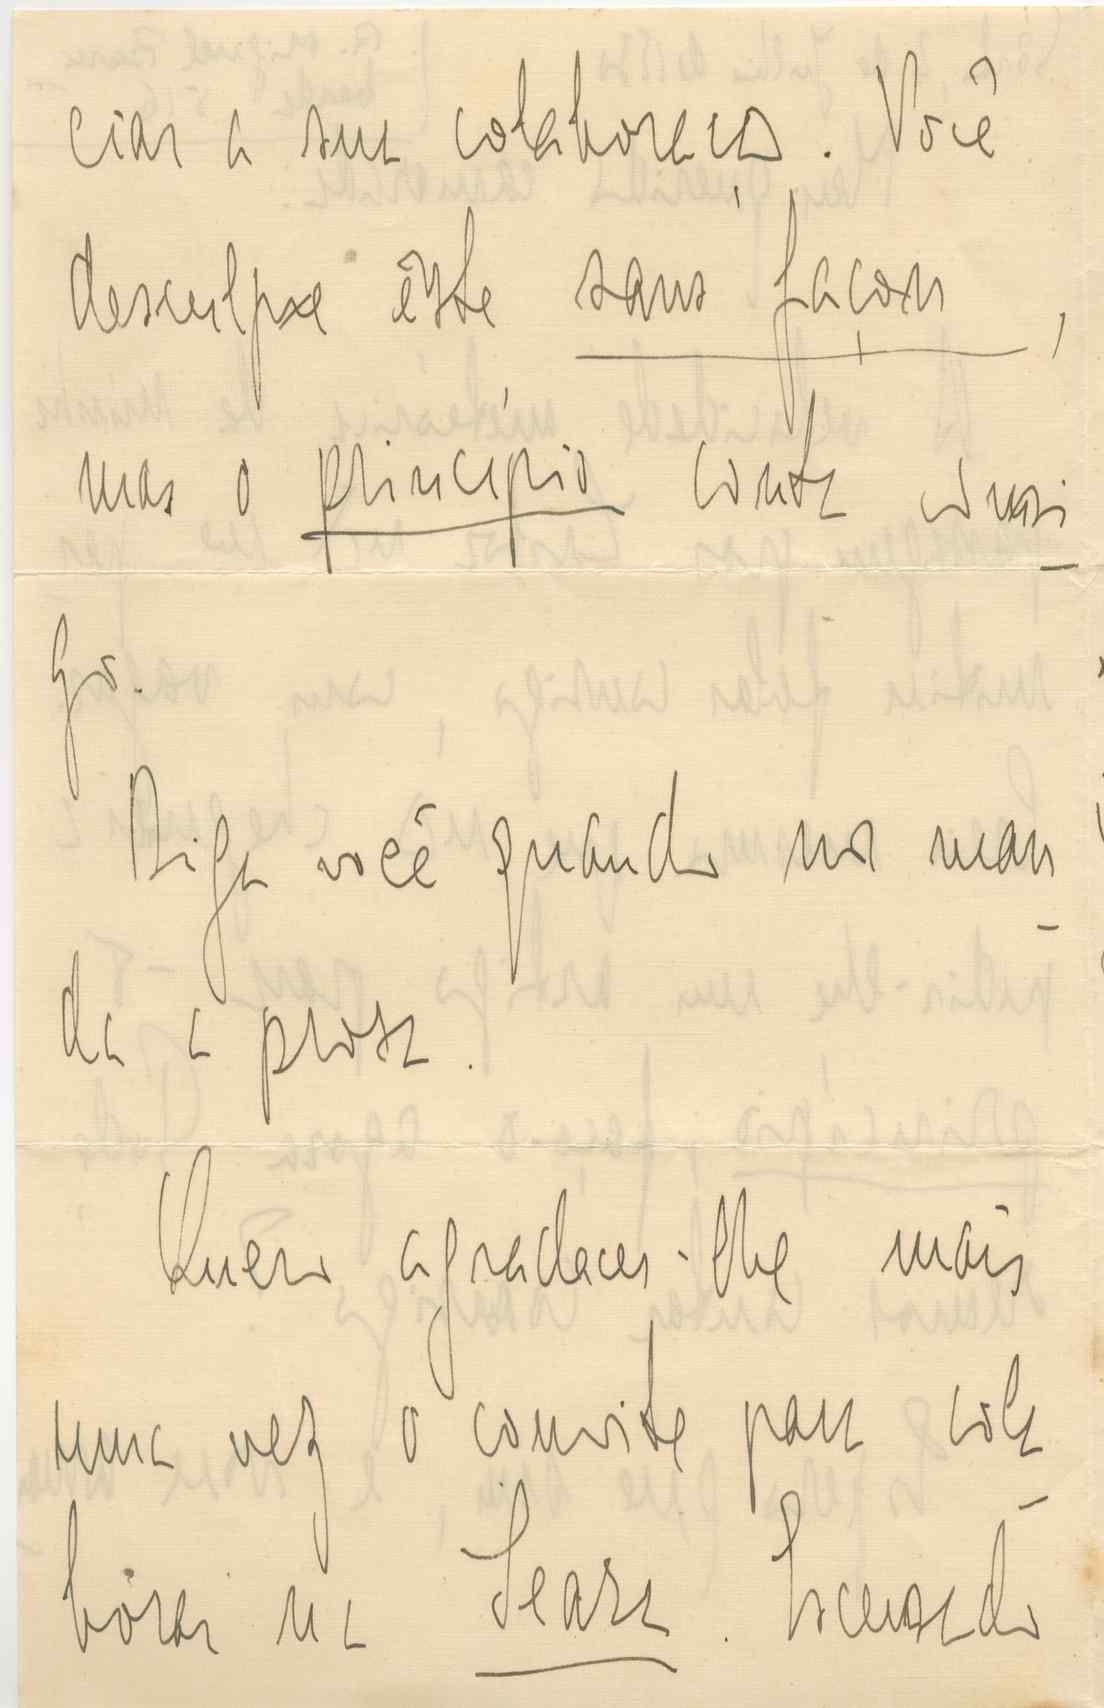 ciar a sua colaboração. Você
desculpe êste sans façon,
mas o princípio conta consi-
go.
Diga você quando nos man-
da a prosa.
Quero agradecer-lhe mais
uma vez o convite para cola-
borar na Seara.